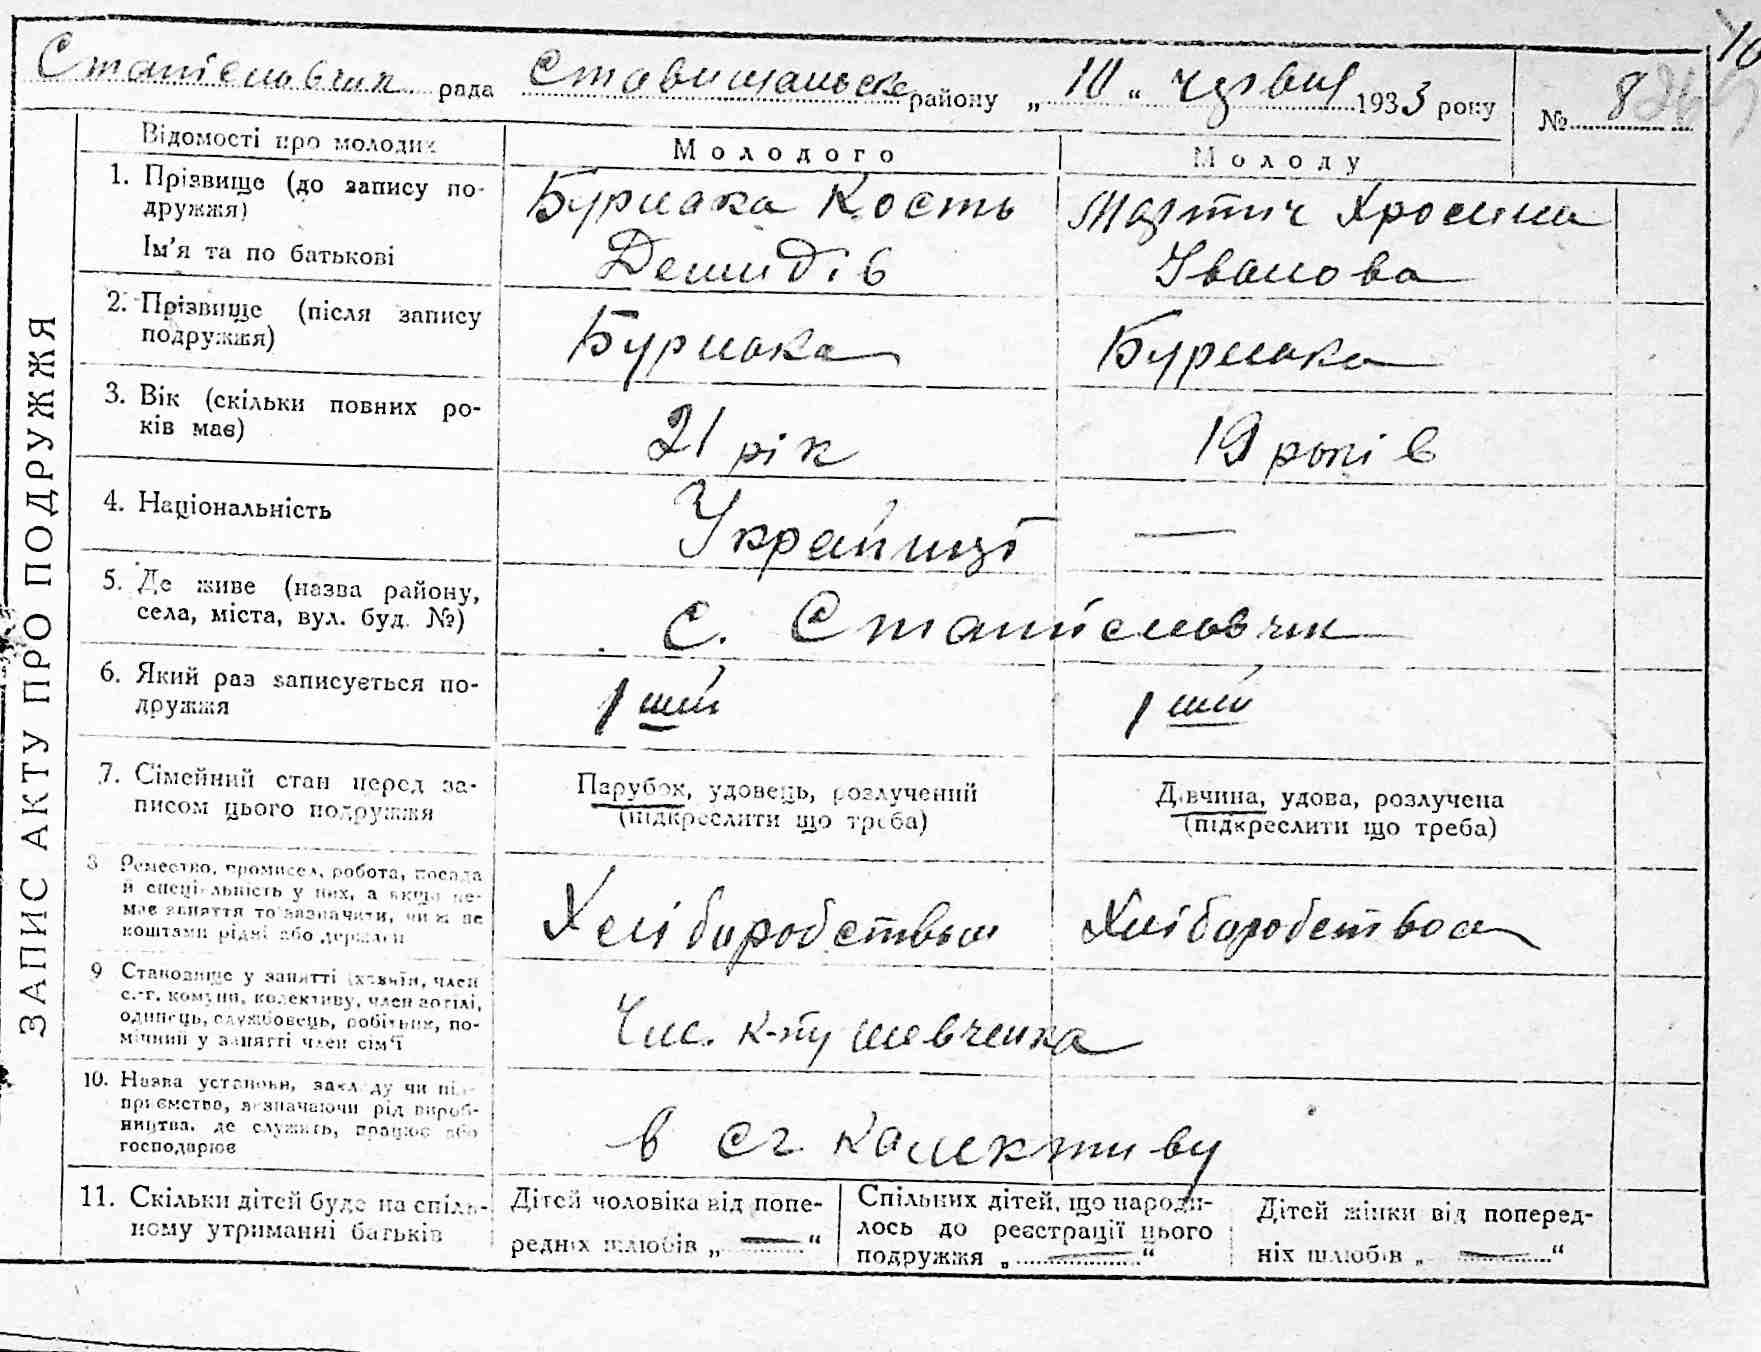 Станіславчик рада Ставищанськ району „ 10 “ червня 1933 року № 8
ЗАПИС АКТУ ПРО ПОДРУЖЖЯ
Відомості про молодих
Молодого
Молоду
1. Прізвище (до запису по-
дружжя)
Ім'я та по батькові
Бурлака Кость
Демидів
Мартич Хросина
Іванова
2. Прізвище (після запису
подружжя)
Бурлака
Бурлака
3. Вік (скільки повних ро-
ків має)
21 рік
19 років
4. Національність
Українці
—
5. Де живе (назва району,
села, міста, вул. буд. №)
с. Станіславчик
6. Який раз записується по-
дружжя
1 ший
1 ший
7. Сімейний стан перед за-
писом цього подружжя
Парубок, удовець, розлучений
(підкреслити що треба)
Дівчина, удова, розлучена
(підкреслити що треба)
8 Ремество, промисел, робота, посада
й спеціяльність у них, а якщо не-
має заняття то зазначити, чи ж не
коштами рідні або держави
Хліборобством
Хліборобством
9 Становище у занятті (хазяїн, член
с.-г. комуни, колективу, член артілі,
одинець, службовець, робітник, по-
мічний у занятті член сім'ї
Чл. к-ту Шевченка
10. Назва установи, закладу чи під-
приємства, зазначаючи рід вироб-
ництва, де служить, працює або
господарює
в сг колективу
11. Скільки дітей буде на спіль-
ному утриманні батьків
Дітей чоловіка від попе-
редніх шлюбів „ — “
Спільних дітей, що народи-
лось до реєстрації цього
подружжя „ — “
Дітей жінки від поперед-
ніх шлюбів „ — “